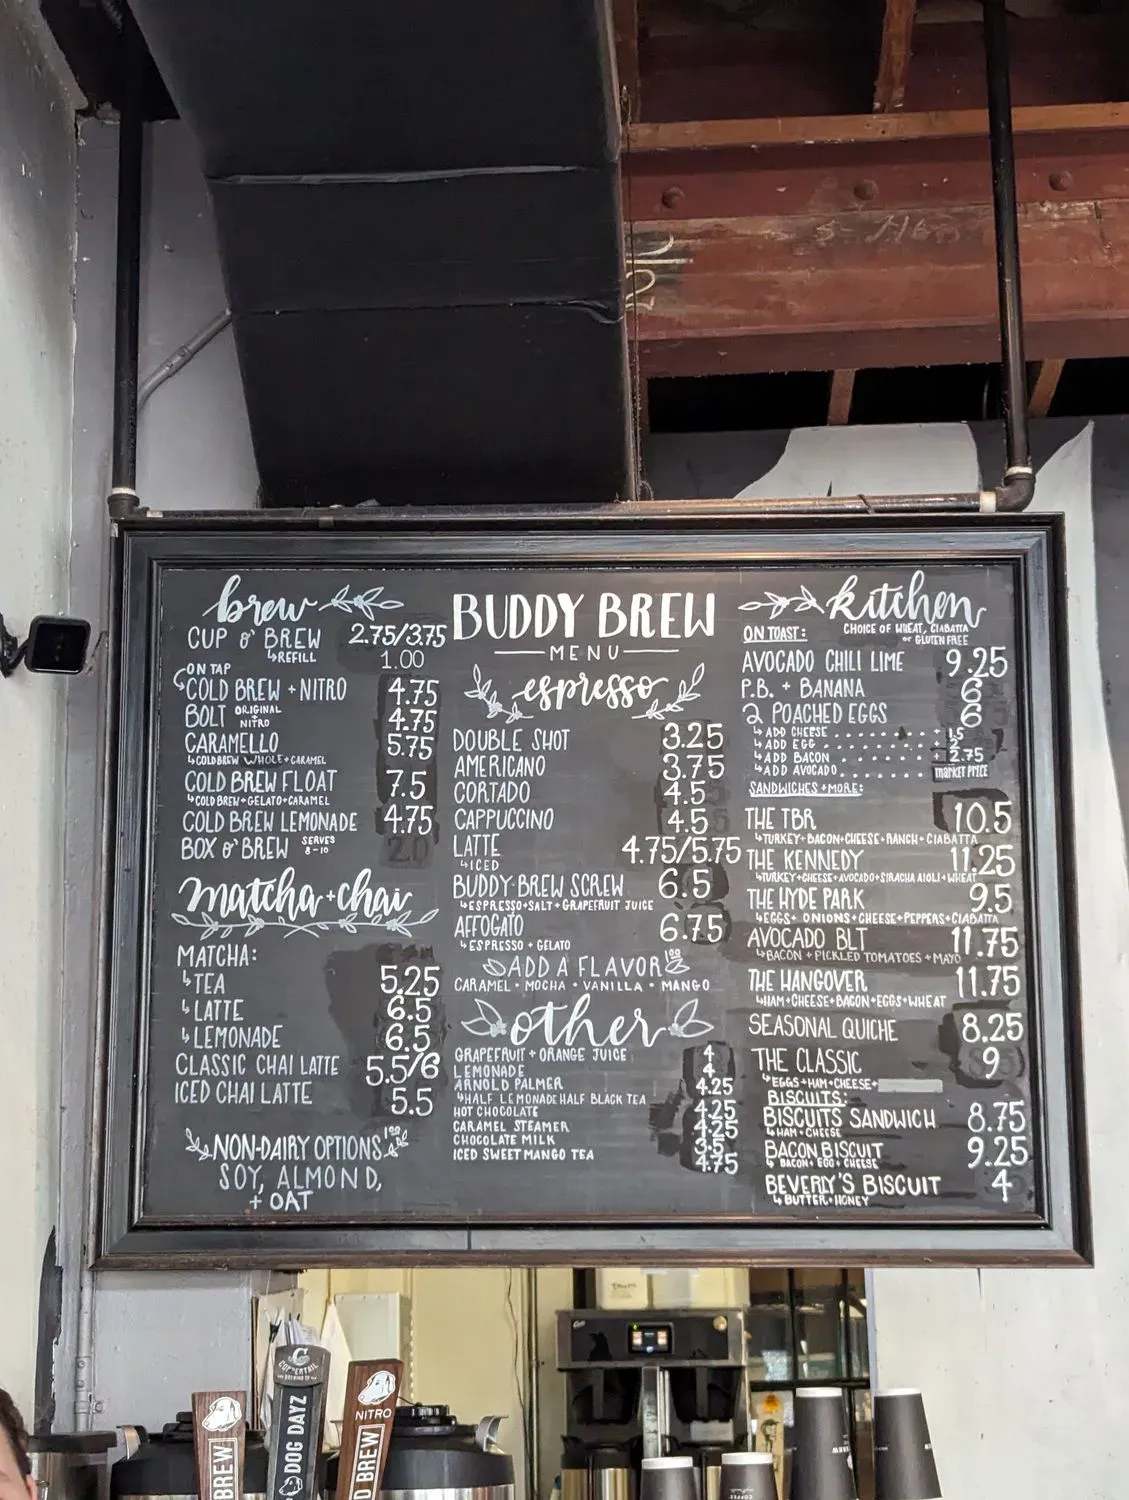 brew
CUP O' BREW 2.75/3.75
↳REFILL 1.00
ON TAP
COLD BREW + NITRO 4.75
BOLT ORIGINAL + NITRO 4.75
CARAMELLO 5.75
↳COLD BREW WHOLE+CARAMEL
COLD BREW FLOAT 7.5
↳COLD BREW+GELATO+CARAMEL
COLD BREW LEMONADE 4.75
BOX O' BREW SERVES 8-10 20
matcha + chai
MATCHA:
↳TEA 5.25
↳LATTE 6.5
↳LEMONADE 6.5
CLASSIC CHAI LATTE 5.5/6
ICED CHAI LATTE 5.5
NON-DAIRY OPTIONS 1.00
SOY, ALMOND,
+ OAT
BUDDY BREW
MENU
espresso
DOUBLE SHOT 3.25
AMERICANO 3.75
CORTADO 4.5
CAPPUCCINO 4.5
LATTE 4.75/5.75
↳ICED
BUDDY BREW SCREW 6.5
↳ESPRESSO+SALT+GRAPEFRUIT JUICE
AFFOGATO 6.75
↳ESPRESSO + GELATO
ADD A FLAVOR 1.00
CARAMEL • MOCHA • VANILLA • MANGO
other
GRAPEFRUIT + ORANGE JUICE 4
LEMONADE 4
ARNOLD PALMER 4.25
↳HALF LEMONADE HALF BLACK TEA
HOT CHOCOLATE 4.25
CARAMEL STEAMER 4.25
CHOCOLATE MILK 3.5
ICED SWEET MANGO TEA 4.75
kitchen
ON TOAST: CHOICE OF WHEAT, CIABATTA
or GLUTEN FREE
AVOCADO CHILI LIME 9.25
P.B. + BANANA 6
2 POACHED EGGS 6
↳ADD CHEESE + 1.5
↳ADD EGG + 2
↳ADD BACON + 2.75
↳ADD AVOCADO MARKET PRICE
SANDWICHES + MORE:
THE TBR 10.5
↳TURKEY+BACON+CHEESE+RANCH+CIABATTA
THE KENNEDY 11.25
↳TURKEY+CHEESE+AVOCADO+SIRACHA AIOLI+WHEAT
THE HYDE PARK 9.5
↳EGGS+ONIONS+CHEESE+PEPPERS+CIABATTA
AVOCADO BLT 11.75
↳BACON+PICKLED TOMATOES+MAYO
THE HANGOVER 11.75
↳HAM+CHEESE+BACON+EGGS+WHEAT
SEASONAL QUICHE 8.25
THE CLASSIC 9
↳EGGS+HAM+CHEESE+
BISCUITS:
BISCUITS SANDWICH 8.75
↳HAM+CHEESE
BACON BISCUIT 9.25
↳BACON+EGG+CHEESE
BEVERLY'S BISCUIT 4
↳BUTTER+HONEY
COPPERTAIL
BREWING CO
DOG DAYZ
NITRO
D BREW
BREW